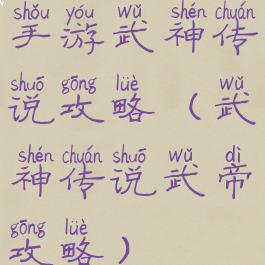 shǒu yóu wǔ shén chuán
手游武神传
shuō gōng lüè wǔ
说攻略(武
shén chuán shuō wǔ dì
神传说武帝
gōng lüè
攻略)